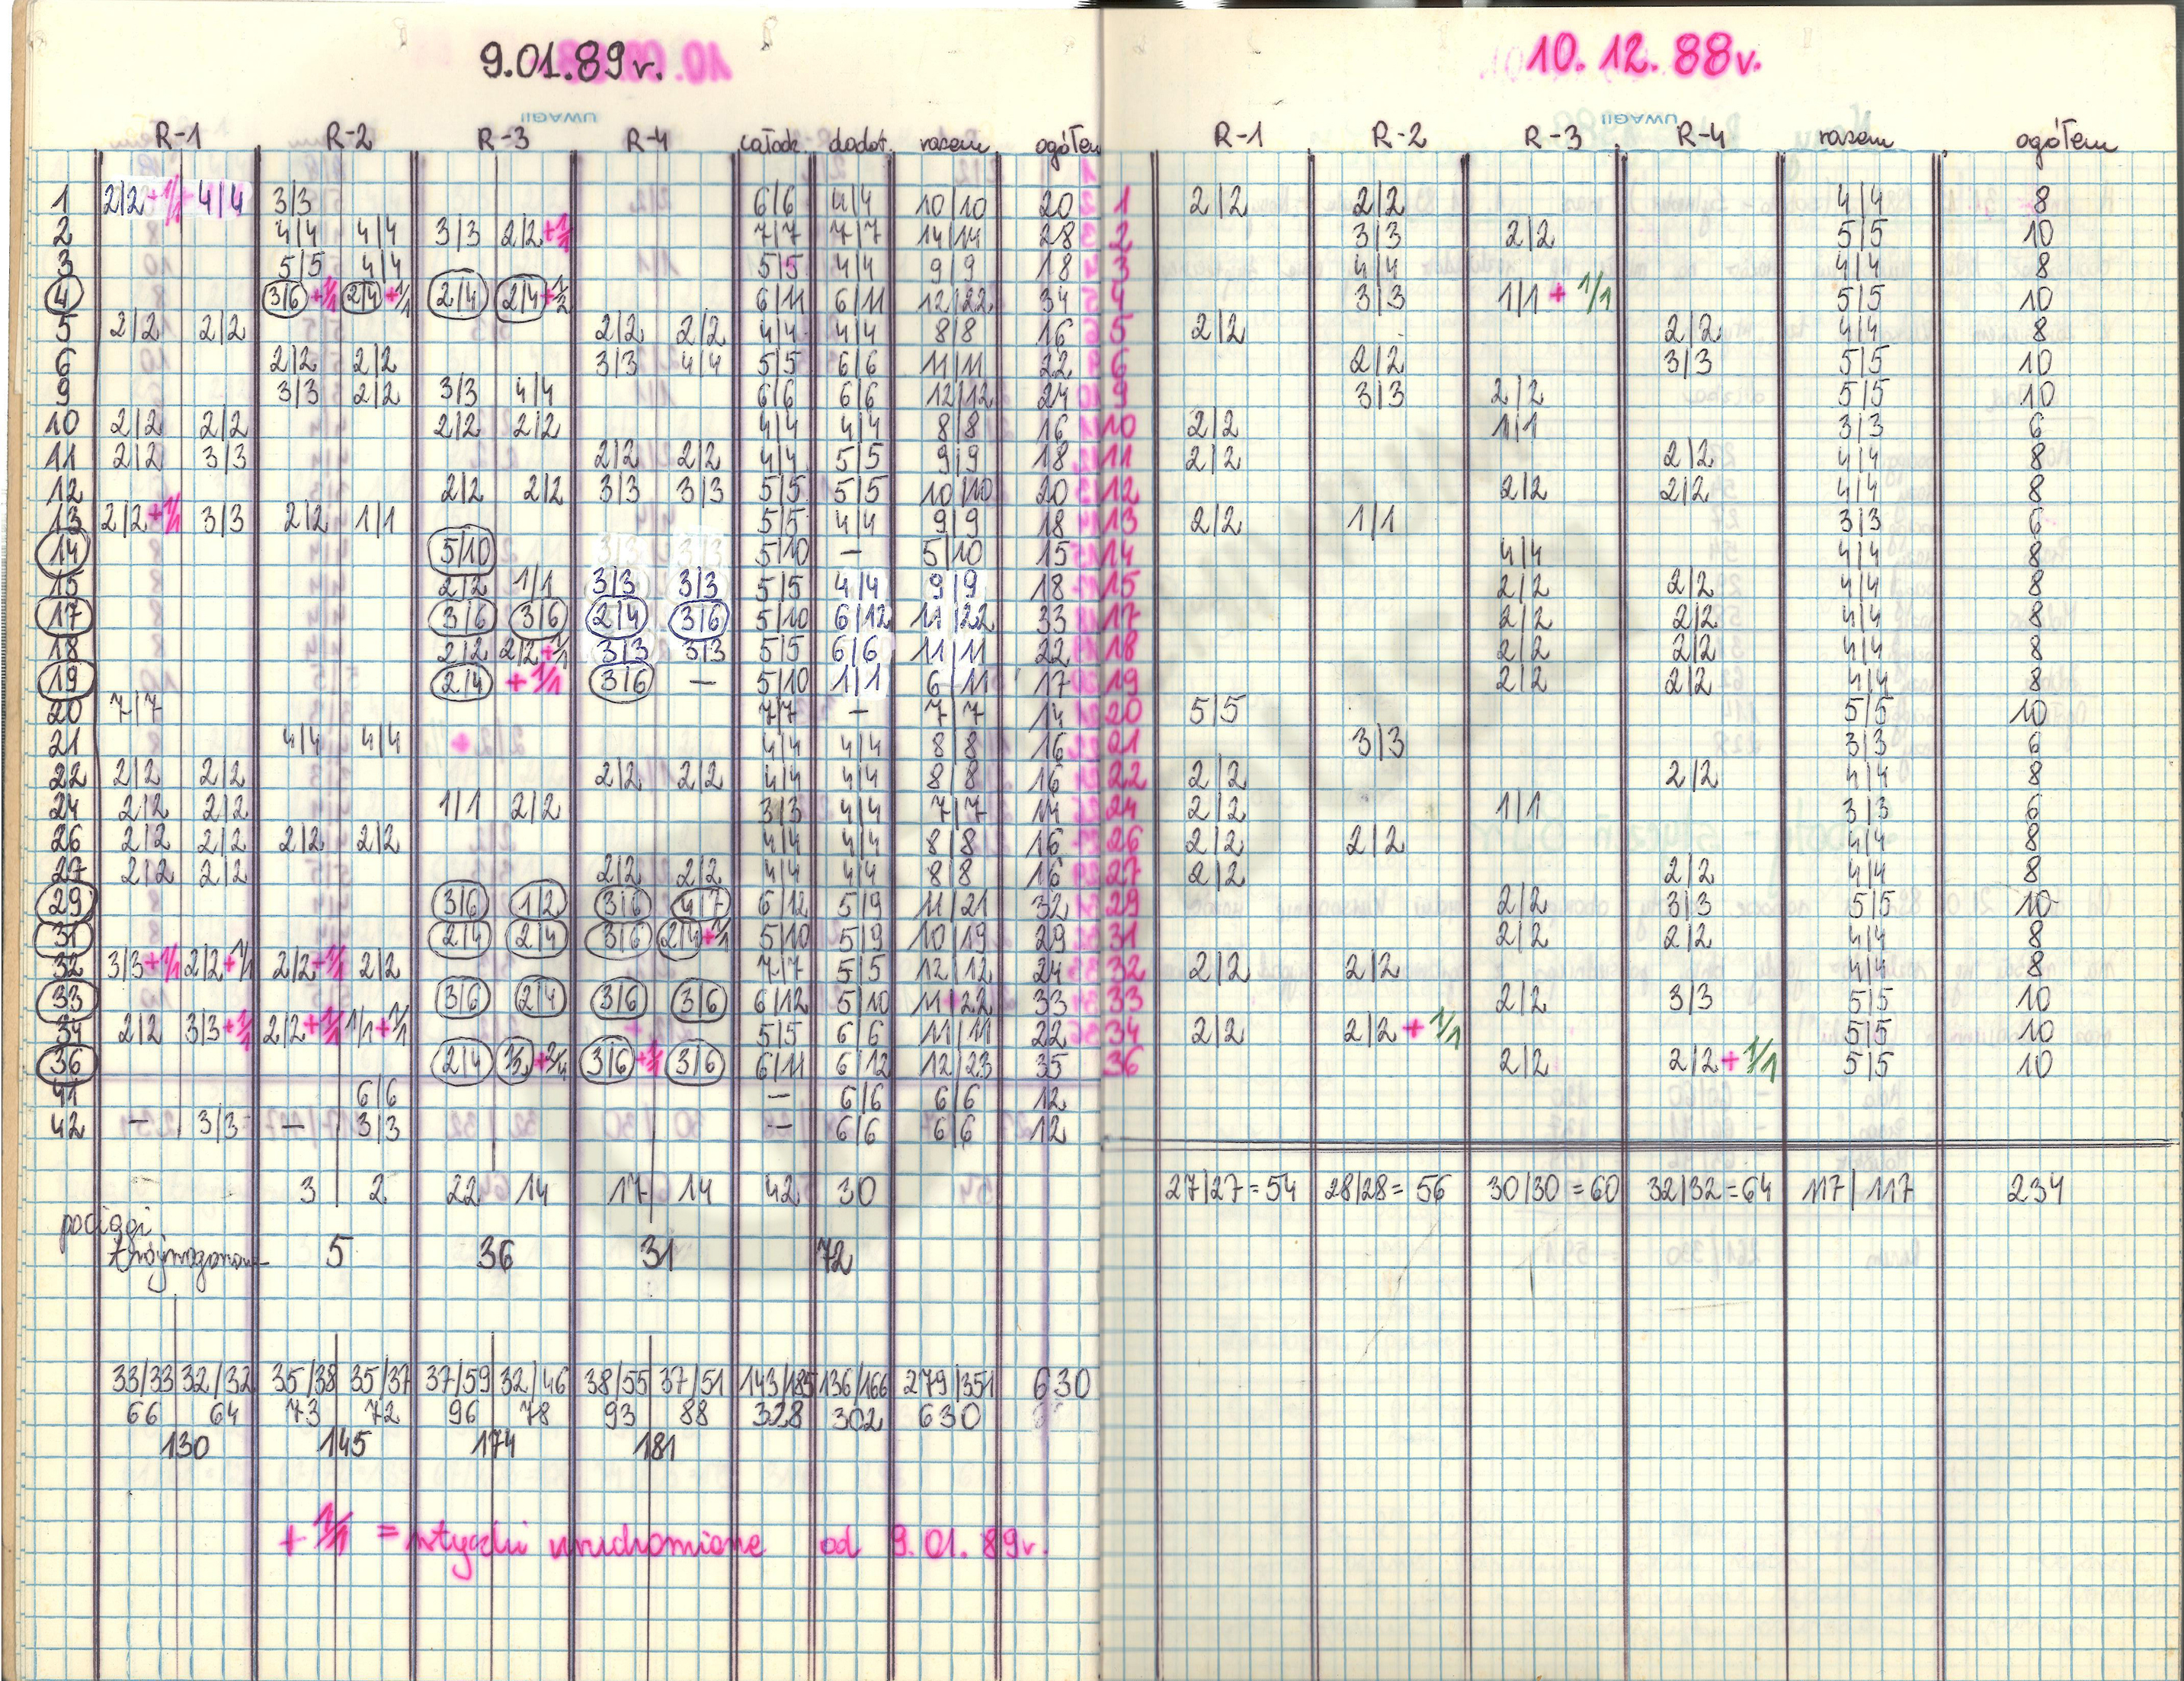 9.01.89r.
UWAGI
R-1 R-2 R-3 R-4 całodz. dodat. razem ogółem
1 2|2 +1/1 4|4 3|3 6|6 4|4 10|10 20
2 4|4 4|4 3|3 2|2 +1/1 7|7 7|7 14|14 28
3 5|5 4|4 5|5 4|4 9|9 18
4 3|6 +1/1 2|4 +1/1 2|4 2|4 +1/2 6|11 6|11 12|22 34
5 2|2 2|2 2|2 2|2 4|4 4|4 8|8 16
6 2|2 2|2 3|3 4|4 5|5 6|6 11|11 22
9 3|3 2|2 3|3 4|4 6|6 6|6 12|12 24
10 2|2 2|2 2|2 2|2 4|4 4|4 8|8 16
11 2|2 3|3 2|2 2|2 4|4 5|5 9|9 18
12 2|2 2|2 3|3 3|3 5|5 5|5 10|10 20
13 2|2 +1/1 3|3 2|2 1|1 5|5 4|4 9|9 18
14 5|10 5|10 — 5|10 15
15 2|2 1|1 3|3 3|3 5|5 4|4 9|9 18
17 3|6 3|6 2|4 3|6 5|10 6|12 11|22 33
18 2|2 2|2 +1/1 3|3 3|3 5|5 6|6 11|11 22
19 2|4 +1/1 3|6 — 5|10 1|1 6|11 17
20 7|7 7|7 — 7|7 14
21 4|4 4|4 + 4|4 4|4 8|8 16
22 2|2 2|2 2|2 2|2 4|4 4|4 8|8 16
24 2|2 2|2 1|1 2|2 3|3 4|4 7|7 14
26 2|2 2|2 2|2 2|2 4|4 4|4 8|8 16
27 2|2 2|2 2|2 2|2 4|4 4|4 8|8 16
29 3|6 1|2 3|6 4|7 6|12 5|9 11|21 32
31 2|4 2|4 3|6 2|4 +1/1 5|10 5|9 10|19 29
32 3|3 +1/1 2|2 +1/1 2|2 +1/1 2|2 7|7 5|5 12|12 24
33 3|6 2|4 3|6 3|6 6|12 5|10 11|22 33
34 2|2 3|3 +1/1 2|2 +1/1 1/1 +1/1 5|5 6|6 11|11 22
36 2|4 3|6 +1/1 3|6 6|11 6|12 12|23 35
41 6|6 — 6|6 6|6 12
42 — 3|3 — 3|3 — 6|6 6|6 12
3 2 22 14 17 14 42 30
pociągi
trójwagonowe 5 36 31 72
33/33 32/32 35/38 35/37 37/59 32/46 38/55 37/51 143/185 136/166 279/351 630
66 64 73 72 96 78 93 88 328 302 630
130 145 174 181
+ 1/1 = wtyczki uruchomione od 9.01.89r.
10.12.88r.
UWAGI
R-1 R-2 R-3 R-4 razem ogółem
1 2|2 2|2 4|4 8
2 3|3 2|2 5|5 10
3 4|4 4|4 8
4 3|3 1|1 + 1/1 5|5 10
5 2|2 2|2 4|4 8
6 2|2 3|3 5|5 10
9 3|3 2|2 5|5 10
10 2|2 1|1 3|3 6
11 2|2 2|2 4|4 8
12 2|2 2|2 4|4 8
13 2|2 1|1 3|3 6
14 4|4 4|4 8
15 2|2 2|2 4|4 8
17 2|2 2|2 4|4 8
18 2|2 2|2 4|4 8
19 2|2 2|2 4|4 8
20 5|5 5|5 10
21 3|3 3|3 6
22 2|2 2|2 4|4 8
24 2|2 1|1 3|3 6
26 2|2 2|2 4|4 8
27 2|2 2|2 4|4 8
29 2|2 3|3 5|5 10
31 2|2 2|2 4|4 8
32 2|2 2|2 4|4 8
33 2|2 3|3 5|5 10
34 2|2 2|2 + 1/1 5|5 10
36 2|2 2|2 + 1/1 5|5 10
27/27=54 28/28=56 30/30=60 32/32=64 117/117 234